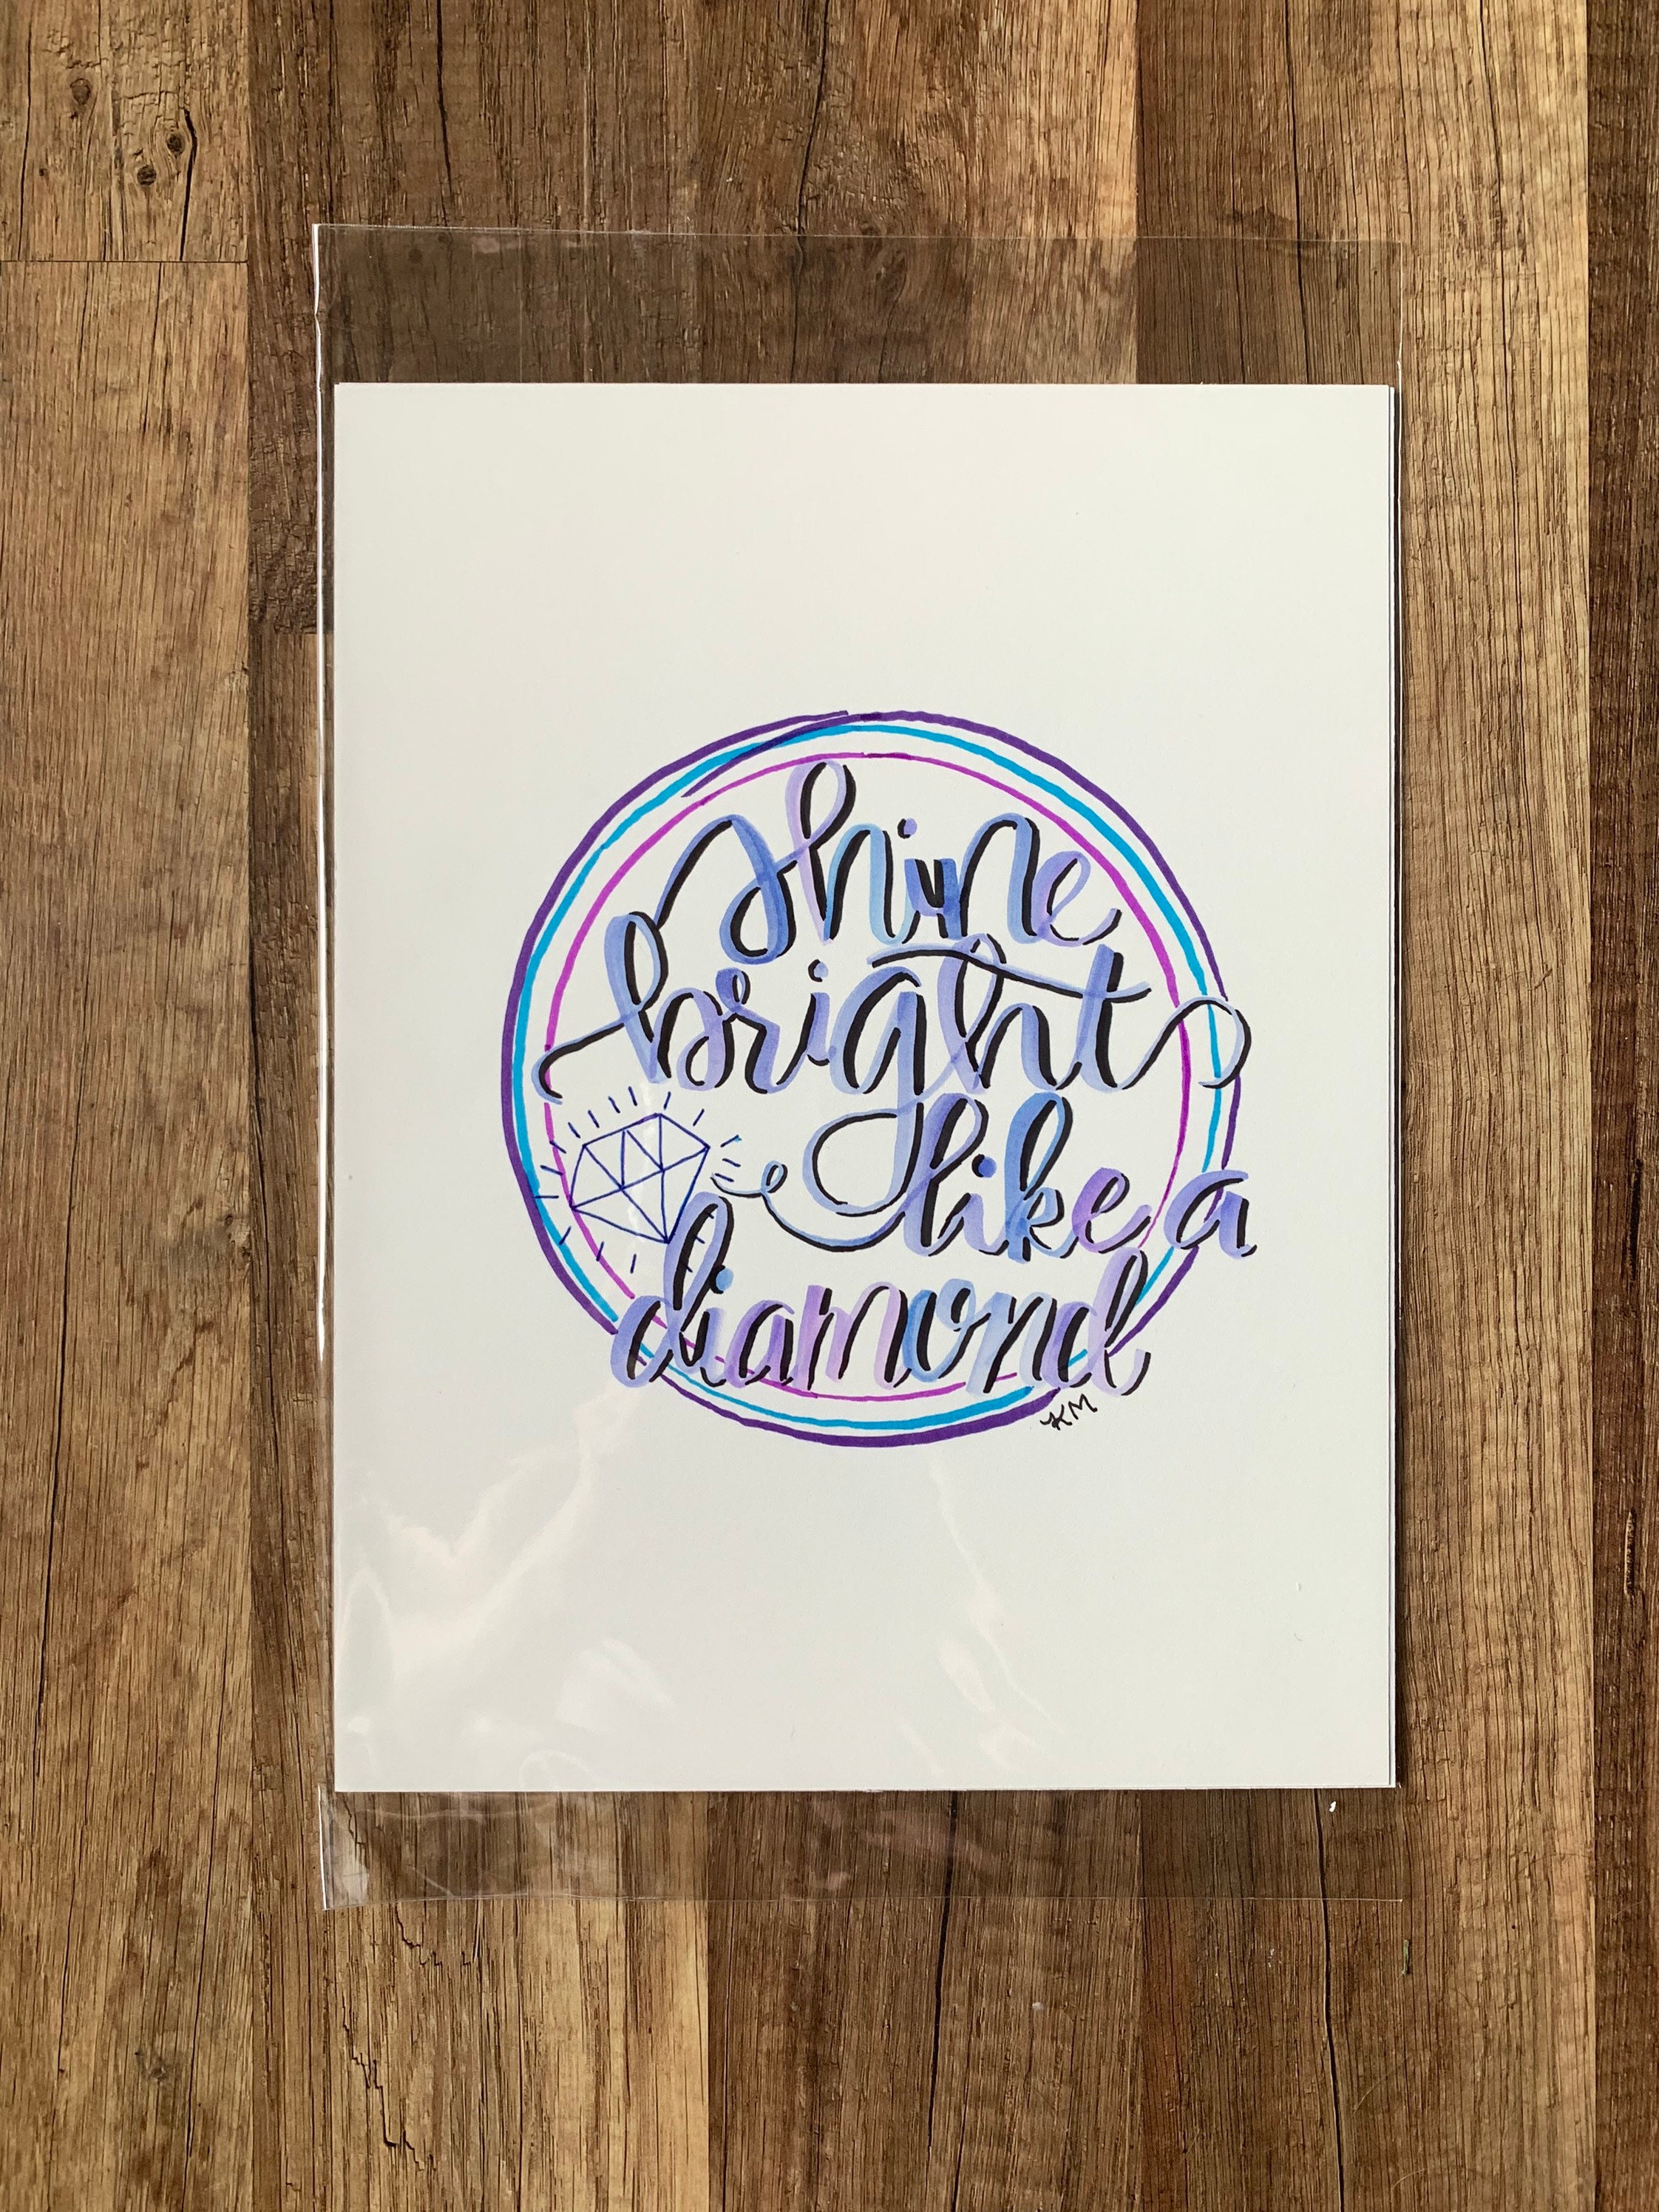 shine
bright
like a
diamond
KM